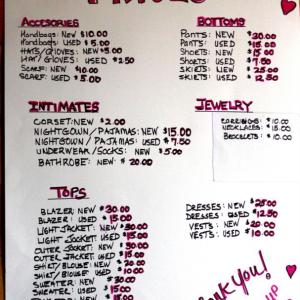 PRICES
ACCESORIES
Handbags: NEW $10.00
Handbags: USED $5.00
HATS/GLOVES: NEW $5.00
HAT/GLOVES: USED $2.50
SCARF: NEW $10.00
SCARF: USED $5.00
BOTTOMS
PANTS: NEW $30.00
PANTS: USED $15.00
SHORTS: NEW $15.00
SHORTS: USED $7.50
SKIRTS: NEW $25.00
SKIRTS: USED $12.50
INTIMATES
CORSET: NEW $2.00
NIGHTGOWN/PAJAMAS: NEW $15.00
NIGHTGOWN/PAJAMA: USED $7.50
UNDERWEAR/SOCKS: NEW $5.00
BATHROBE: NEW $20.00
JEWELRY
EARRINGS: $10.00
NECKLACES: $15.00
BRACELETS: $10.00
TOPS
BLAZER: NEW $30.00
BLAZER: USED $15.00
LIGHT JACKET: NEW $30.00
LIGHT JACKET: USED $15.00
OUTER JACKET: NEW $30.00
OUTER JACKET: USED $15.00
SHIRT/BLOUSE: NEW $20.00
SHIRT/BLOUSE: USED $10.00
SWEATER: NEW $30.00
SWEATER: USED $15.00
DRESSES: NEW $25.00
DRESSES: USED $12.50
VESTS: NEW $20.00
VESTS: USED $10.00
Thank You!